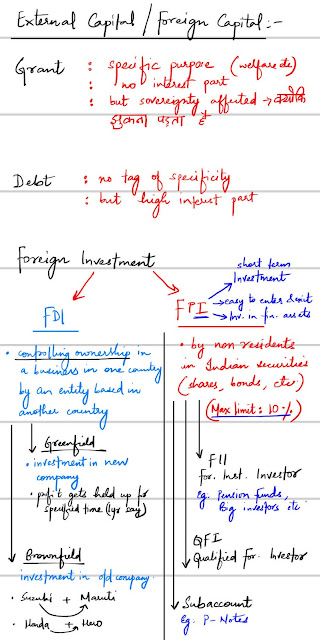 External Capital / Foreign Capital :-
Grant : specific purpose (welfare etc)
: no interest part
: but sovereignty affected → क्योंकि
झुकना पड़ता है
Debt : no tag of specificity
: but high interest part
Foreign Investment
short term
Investment
FDI
FPI
→ easy to enter & exit
→ Inv. in fin. assets
• controlling ownership in
a business in one country
by an entity based in
another country
Greenfield
• investment in new
company
• profit gets held up for
specified time (1yr say)
Brownfield
investment in old company.
• Suzuki + Maruti
• Honda + Hero
• by non residents
in Indian securities
(shares, bonds, etc)
(Max limit : 10%)
FII
For. Inst. Investor
Eg. Pension funds,
Big investors etc.
QFI
Qualified For. Investor
Subaccount
Eg. P-Notes